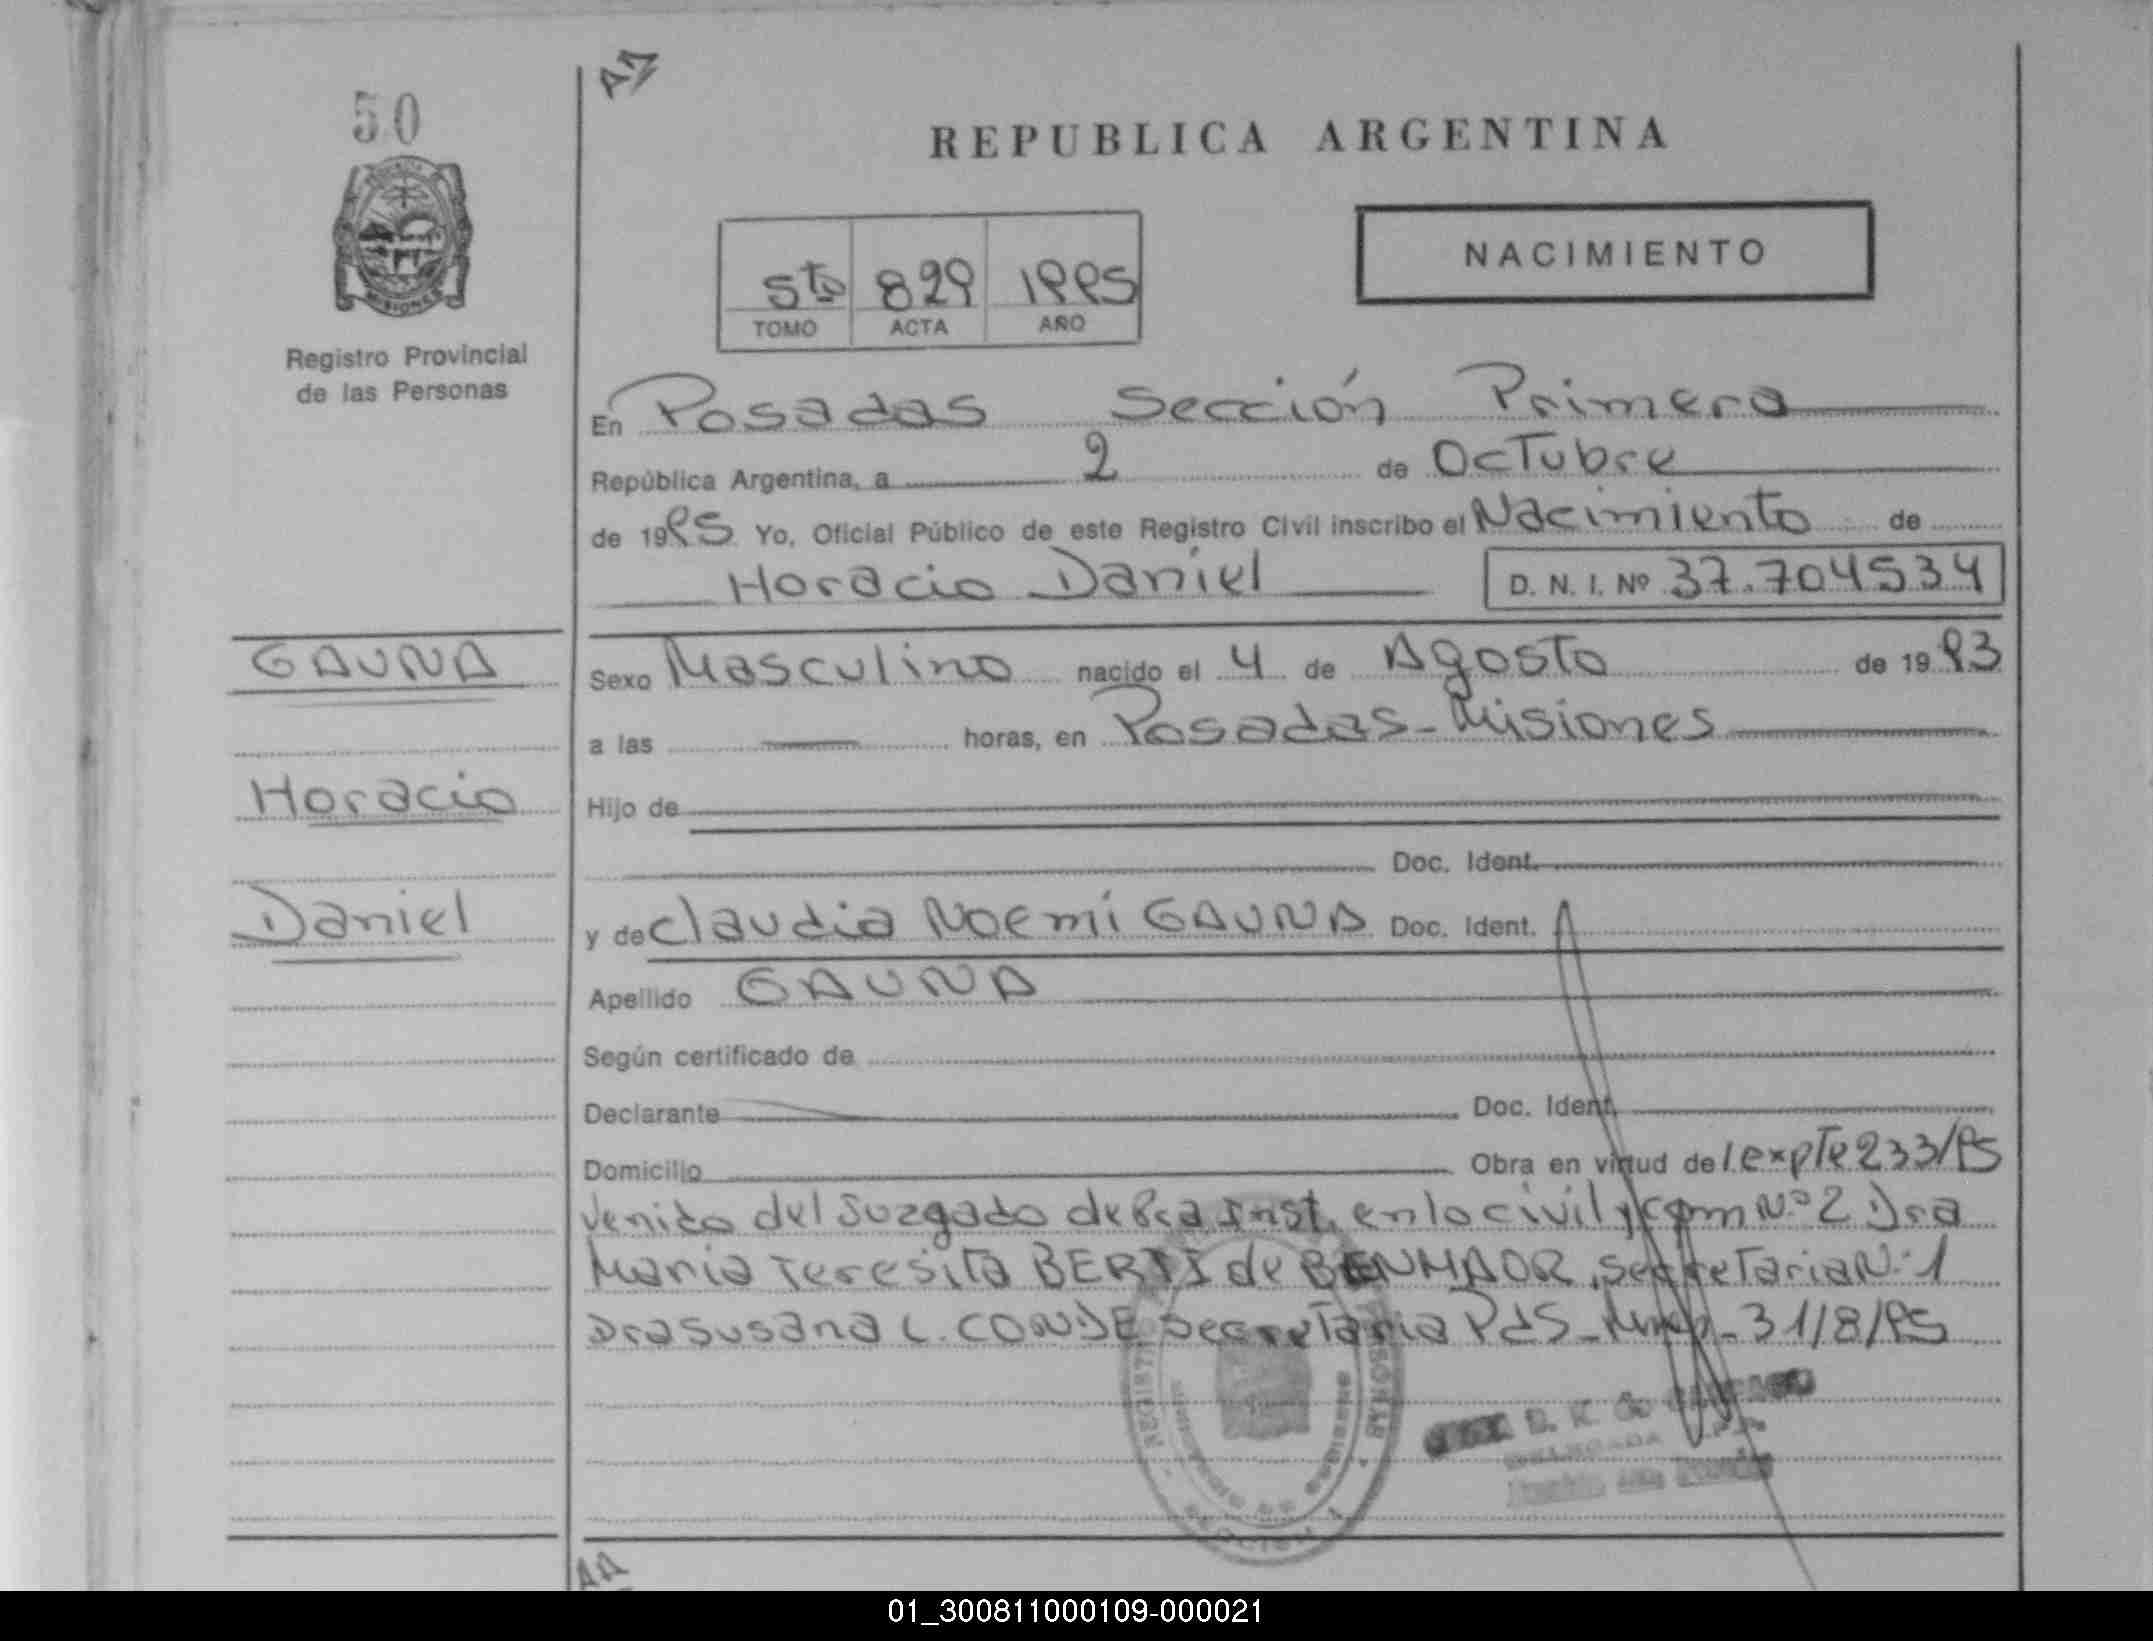 50
REPUBLICA ARGENTINA
NACIMIENTO
5to 829 1995
TOMO ACTA AÑO
Registro Provincial
de las Personas
En Posadas Sección Primera
República Argentina, a 2 de Octubre
de 1995 Yo, Oficial Público de este Registro Civil inscribo el Nacimiento de
Horacio Daniel D. N. I. Nº 37.704534
GAUNA
Horacio
Daniel
Sexo Masculino nacido el 4 de Agosto de 1993
a las horas, en Posadas - Misiones
Hijo de
Doc. Ident.
y de Claudia Noemí GAUNA Doc. Ident.
Apellido GAUNA
Según certificado de
Declarante Doc. Ident.
Domicilio Obra en virtud del expte 233/95
venido del Juzgado de Pra Inst. en lo civil y Com Nº 2 Dra
Maria Teresita BERTI de BENMAOR, secretaria Nº 1
Dra Susana L. CONDE Secretaria Pds - Mnes - 31/8/95
SECCION 1
01_300811000109-000021